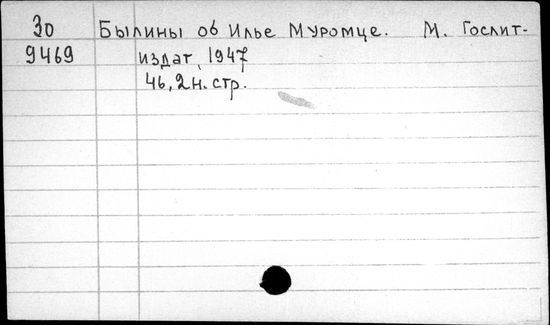 30 Былины об Илье Муромце. М. Гослит-
9469 издат, 1947
46, 2 н. стр.